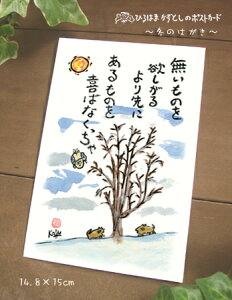 ひろはまかずとしのポストカード
～冬のはがき～
無いものを
欲しがる
より先に
あるものを
喜ばなくっちゃ
14.8×15cm